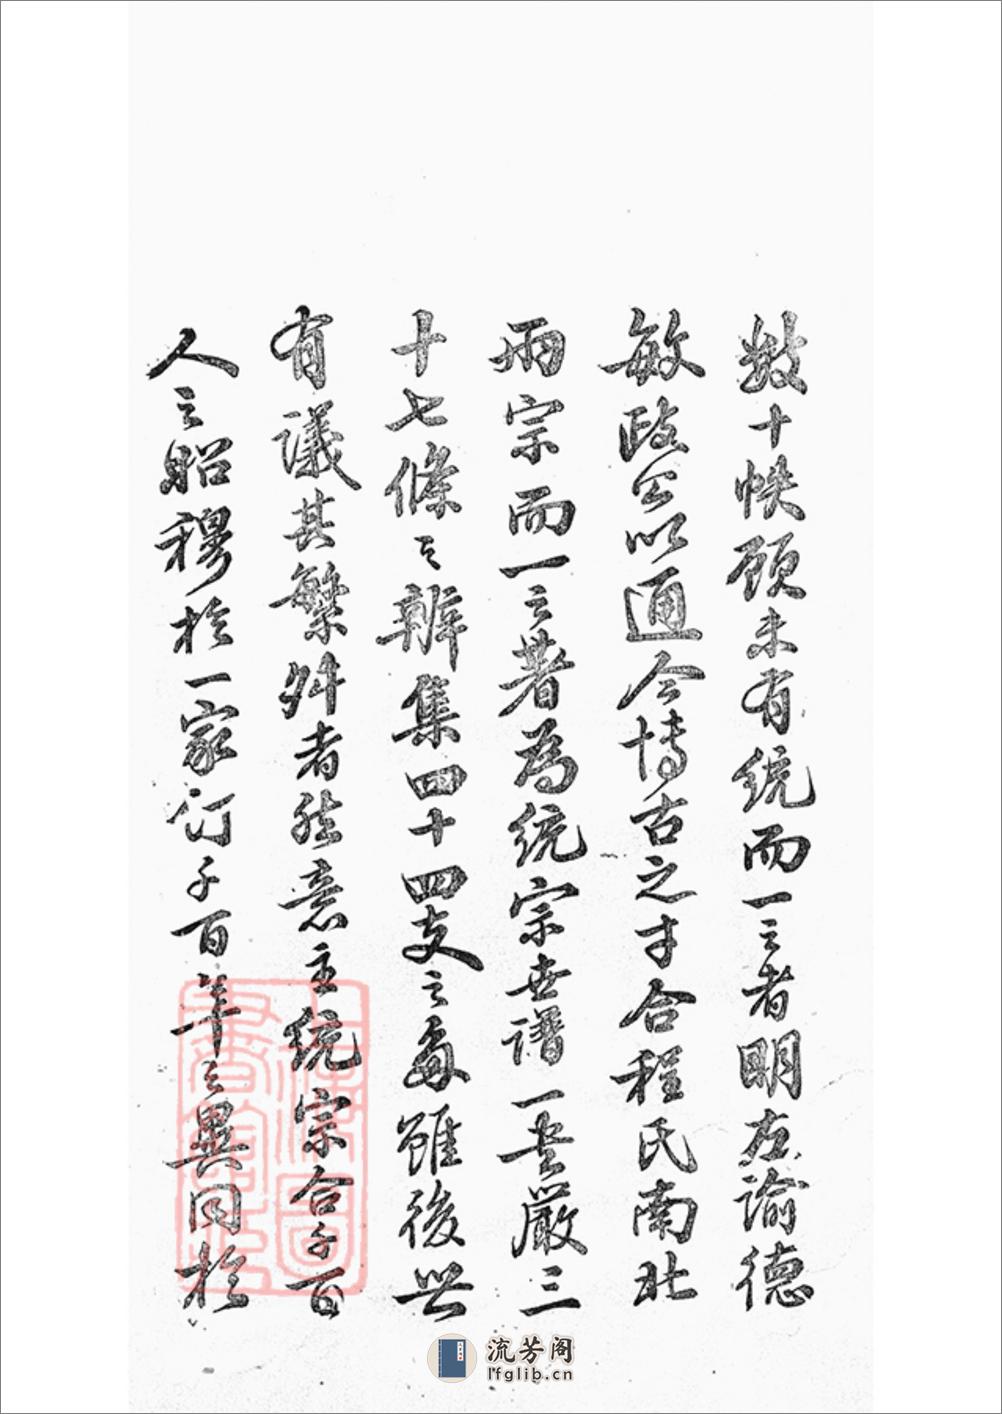 數十帙顧未有統而一之者明左諭德
敏政公以通今博古之才合程氏南北
兩宗而一之著為統宗世譜一書嚴三
十七條之辨集四十四支之多雖後世
有議其繁舛者然意主統宗合千百
人之昭穆於一家訂千百年之異同於
流芳阁
lfglib.cn